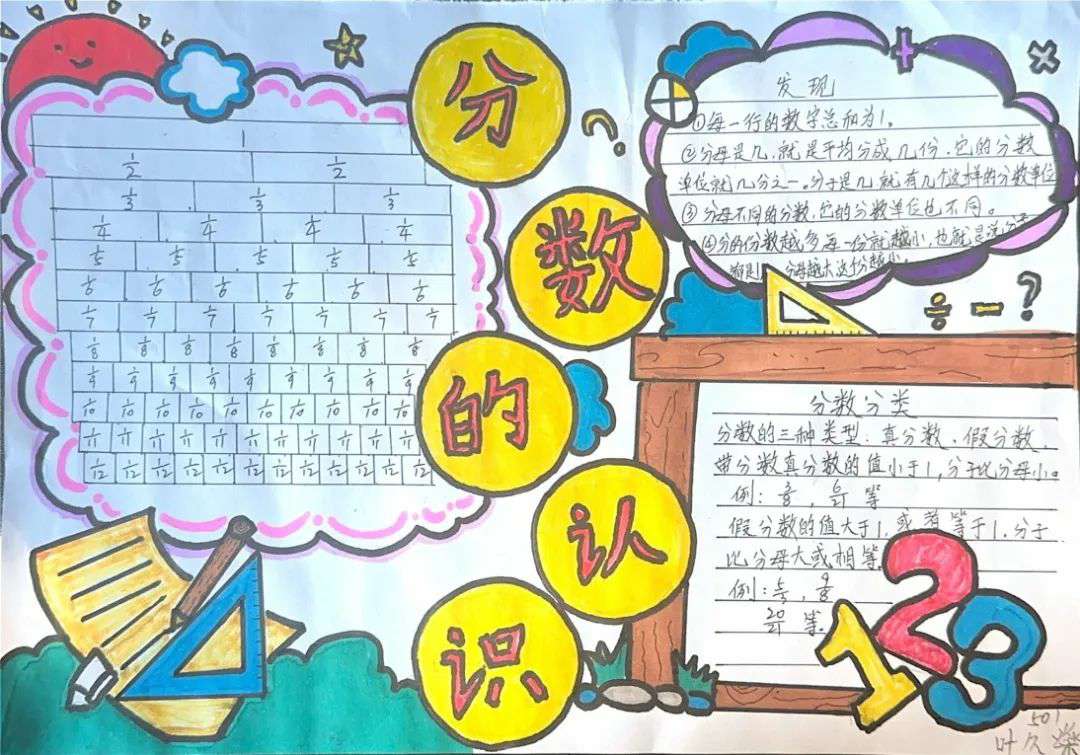 分
数
的
认
识
1
1/2 1/2
1/3 1/3 1/3
1/4 1/4 1/4 1/4
1/5 1/5 1/5 1/5 1/5
1/6 1/6 1/6 1/6 1/6 1/6
1/7 1/7 1/7 1/7 1/7 1/7 1/7
1/8 1/8 1/8 1/8 1/8 1/8 1/8 1/8
1/9 1/9 1/9 1/9 1/9 1/9 1/9 1/9 1/9
1/10 1/10 1/10 1/10 1/10 1/10 1/10 1/10 1/10 1/10
1/11 1/11 1/11 1/11 1/11 1/11 1/11 1/11 1/11 1/11 1/11
1/12 1/12 1/12 1/12 1/12 1/12 1/12 1/12 1/12 1/12 1/12 1/12
?
+
×
发现
①每一行的数字总和为1。
②分母是几，就是平均分成几份，它的分数
单位就几分之一。分子是几，就有几个这样的分数单位
③分母不同的分数，它的分数单位也不同。
④分的份数越多每一份就越小，也就是说分
分母越大这个分越小。
÷ - ?
分数分类
分数的三种类型：真分数、假分数、
带分数真分数的值小于1，分子比分母小。
例： 等
假分数的值大于1，或者等于1，分子
比分母大或相等。
例： 9/8
等。
1 2 3
501
叶